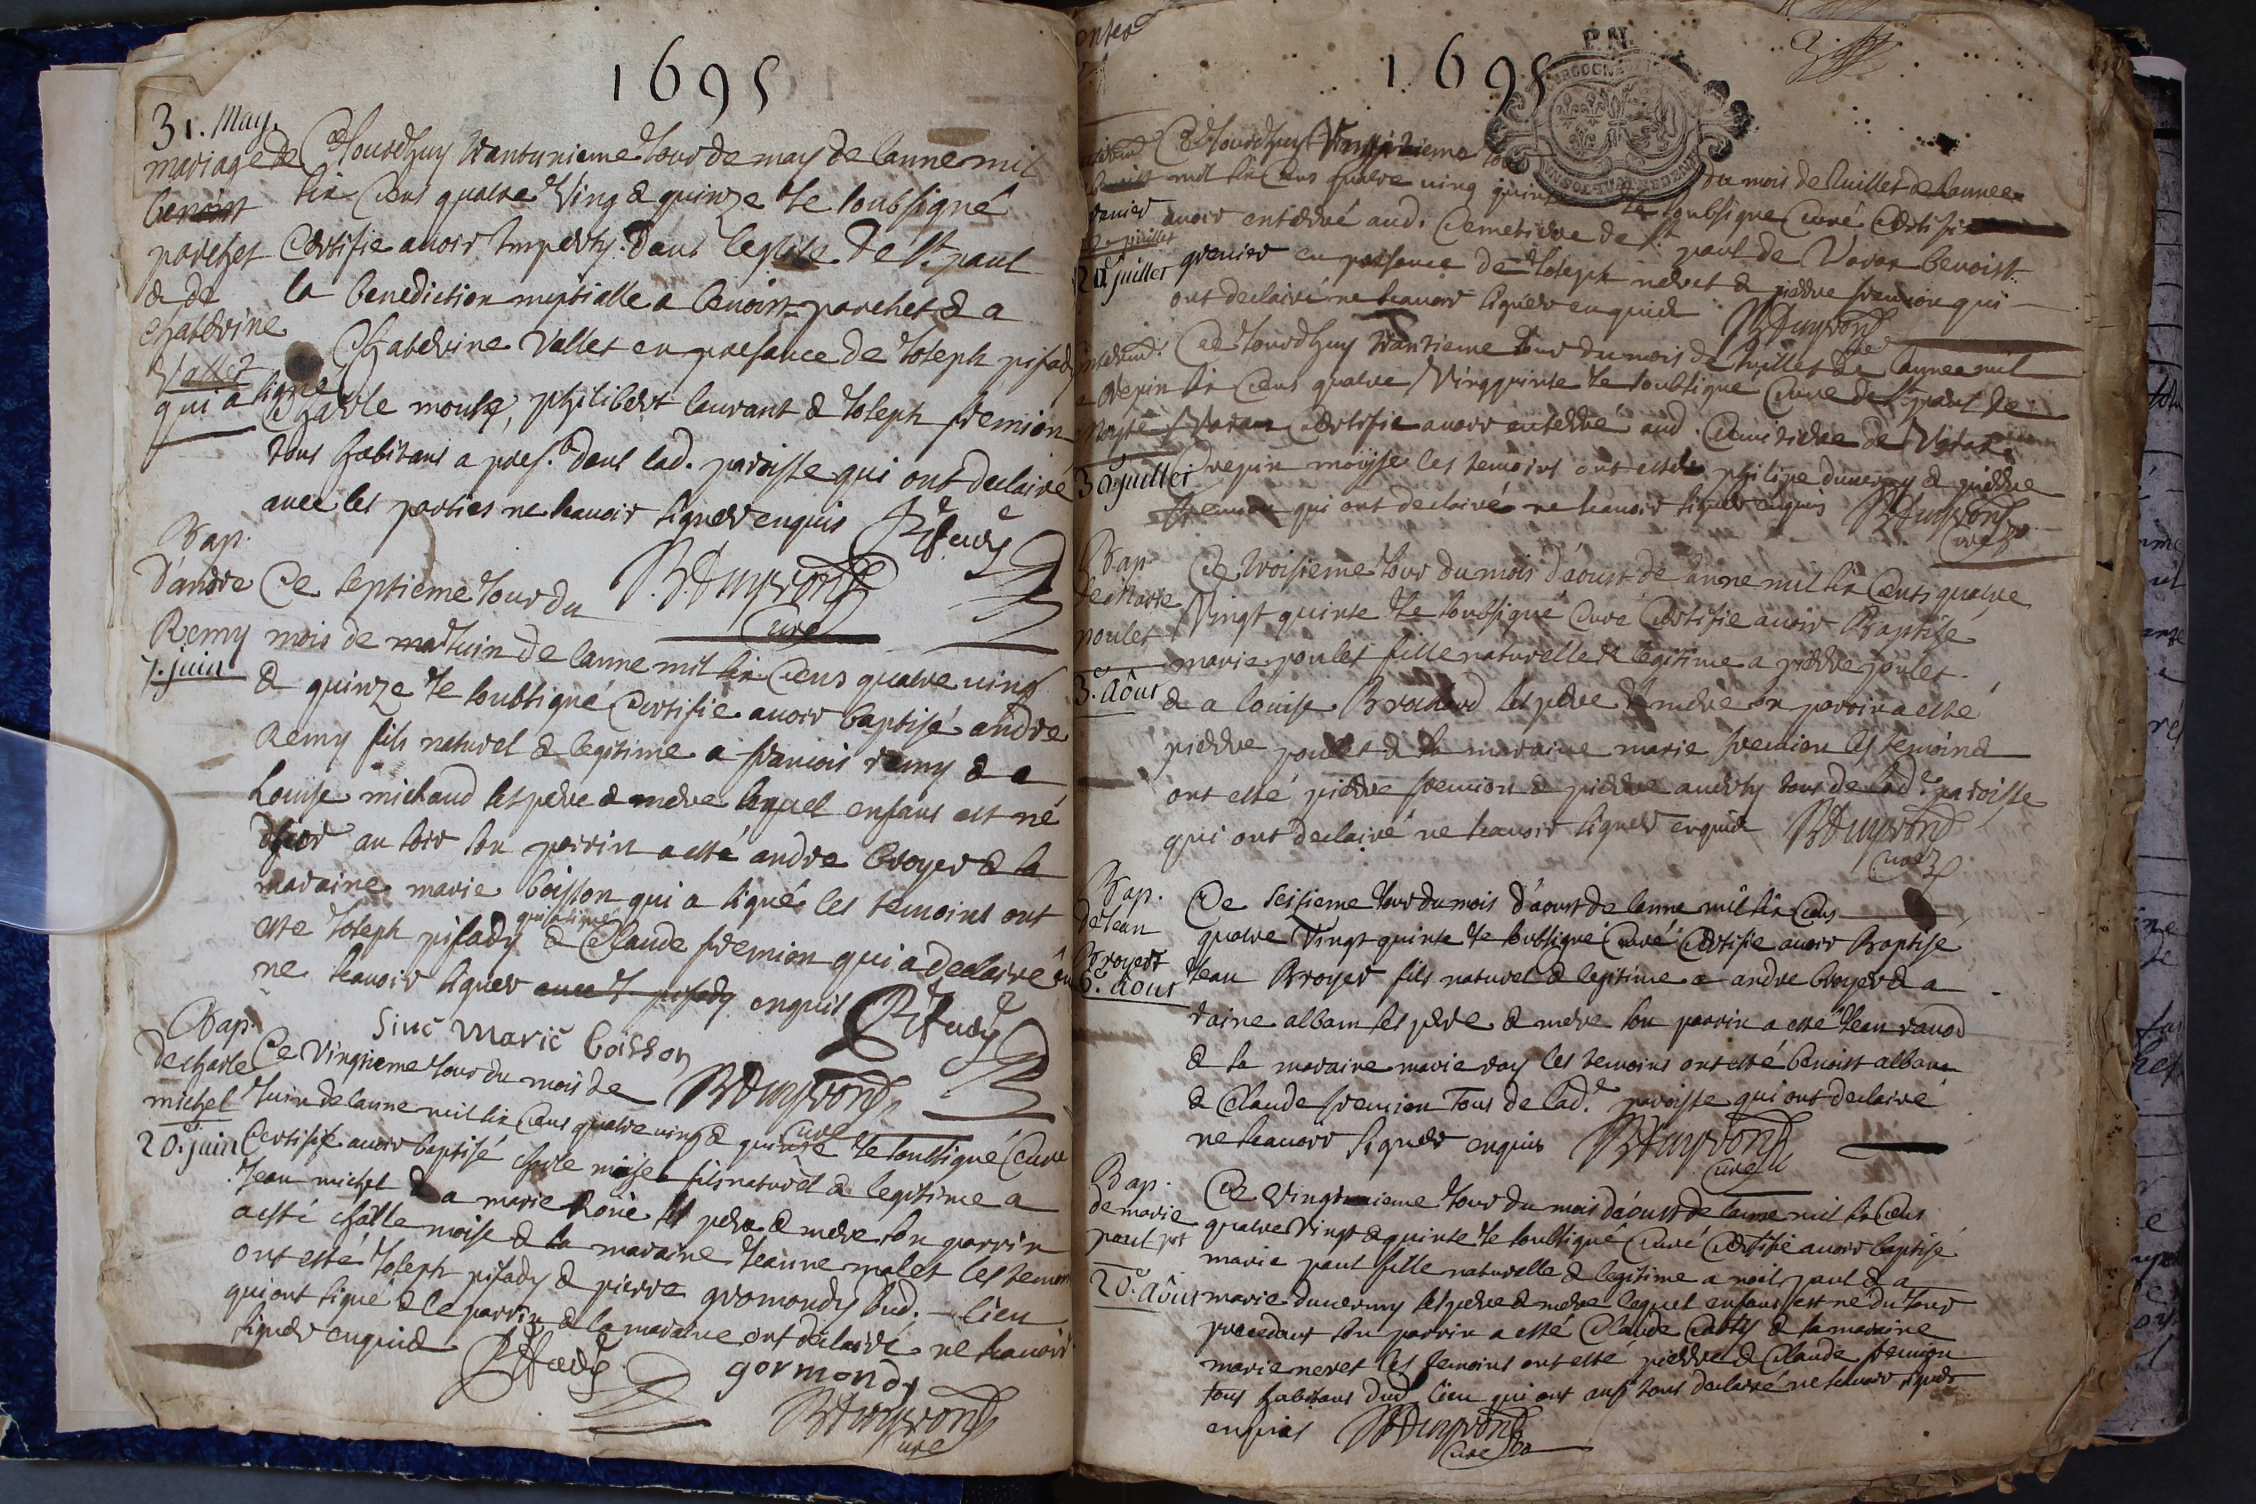 1695
31. May.
mariage de
benoist
porchet
& de
chaterine
Vallet
qui a signe
Ce Jourdhuy trantunieme Jour de may de lanne mil
six Cens quatre Ving & quinze Je soubsigné
Certifie avoir Imparty dans leglise de St paul
la benediction nuptialle a benoist porchet & a
Chaterine Vallet en presance de Joseph pisady
Charle monse, philibert laurant & Joseph fremion
tous habitans a pres.t dans lad. paroisse qui ont declairé
avec les parties ne scavoir signer enquis
Curé
Bap.
D'andre
Remy
7. juin
Ce septieme Jour du
mois de Juin de lanne mil six Cens quatre ving
& quinze Je soubsigné Certifie avoir baptisé andre
Remy fils naturel & legitime a francois remy & a
Louise michaud ses pere & mere lequel enfant est né
hier au soir son parrin a esté andre broyer & la
maraine marie boisson qui a signé les temoins ont
este Joseph pisady qui a signé & Claude fremion qui a declairé
ne scavoir signer enquis
Marie boisson
Bap.
De charle
michel
20. juin
Ce Vingtieme Jour du mois de
Juin de lanne mil six Cens quatre ving & quinze Je soubsigné Curé
Certifie avoir baptisé charle fils naturel & legitime a
Jean michel & a marie ses pere & mere son parrin
a esté charle moise & la maraine Jeanne malet les temoins
ont esté Joseph pisady & pierre gromondy dud. lieu
qui ont signé & le parrin & la maraine ont declairé ne scavoir
signer enquis
gormondy
Curé
1695
Ce Jourdhuy
du mois de Juillet de lannee
mil six Cens quatre ving quinze Je soubsigne Curé Certifie
avoir enterré aud. Cemetiere de St paul de Varax benoist
grenier en presance de Joseph neret & pierre fremion qui
ont declairé ne scavoir signer enquis
juillet
Ce Jourdhuy trantieme Jour du mois de Juillet de lannee mil
six Cens quatre Vingquinse Je soubsigné Curé de St paul de
Varax Certifie avoir enterré aud. Cemitiere de Varax
Crepin moyse les temoins ont esté philipe duverny & pierre
fremion qui ont declairé ne scavoir signer enquis
Curé
30 juillet
Bap
de Marie
poulet
3. Aôut
Ce troisieme Jour du mois d'aoust de lanne mil six Cens quatre
Vingt quinse Je soubsigné Curé Certifie avoir Baptisé
marie poulet fille naturelle & legitime a pierre poulet
& a louise Brochard ses pere & mere son parrin a esté
pierre poulet & la maraine marie fremion les temoins
ont esté pierre fremion & pierre tous de lad. paroisse
qui ont declairé ne scavoir signer enquis
Curé
Bap.
de Jean
Broyer
6. Aout
Ce seisieme Jour du mois d'aoust de lanne mil six Cens
quatre Vingt quinse Je soubsigné Curé Certifie avoir Baptisé
Jean Broyer fils naturel & legitime a andre broyer & a
taine alban ses pere & mere son parrin a esté Jean
& la maraine marie ray les temoins ont esté benoist alban
& Claude fremion Tous de lad. paroisse qui ont declairé
ne scavoir signer enquis
Curé
Bap.
de marie
paul
20. Aôut
Ce Vingtieme Jour du mois d'aoust de lanne mil six Cens
quatre Vingt & quinse Je soubsigné Curé Certifie avoir baptisé
marie paul fille naturelle & legitime a noil paul & a
marie duverny ses pere & mere lequel enfant est né du Jour
precedant son parrin a esté Claude & la maraine
marie neret les temoins ont esté pierre & Claude fremion
tous habitans dud. lieu qui ont ausi tous declairé ne scavoir signer
enquis
Curé